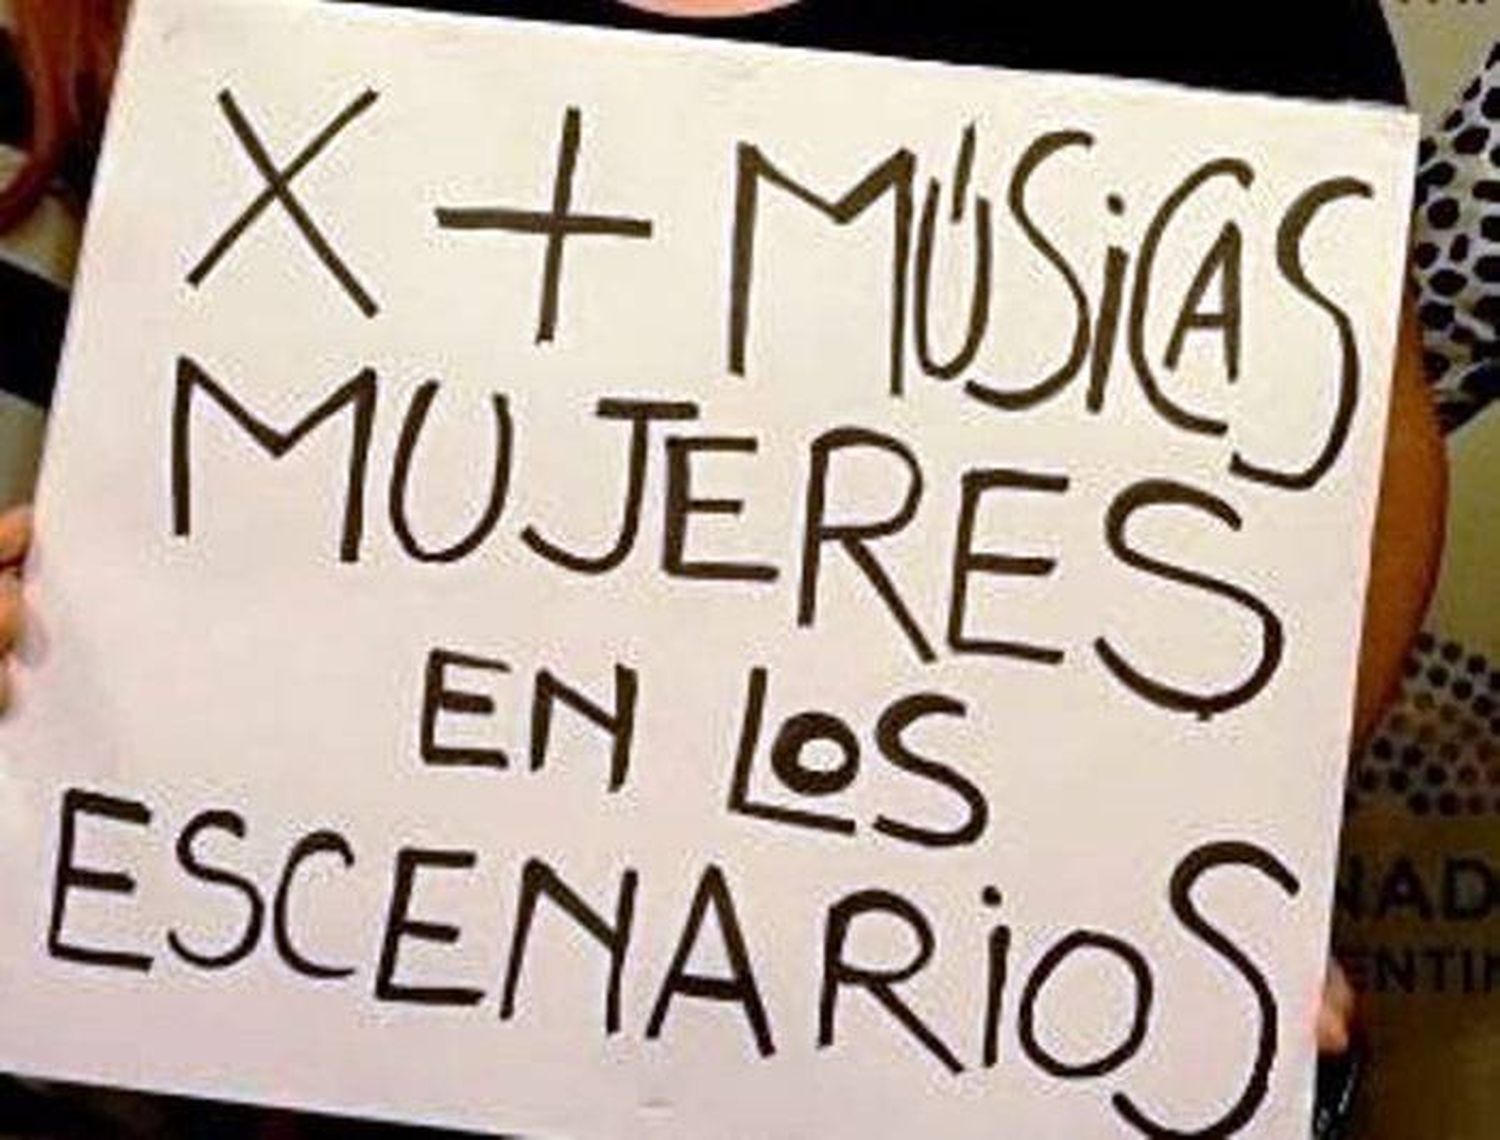 X + MÚSiCAS
MUJERES
EN LOS
ESCENARiOS